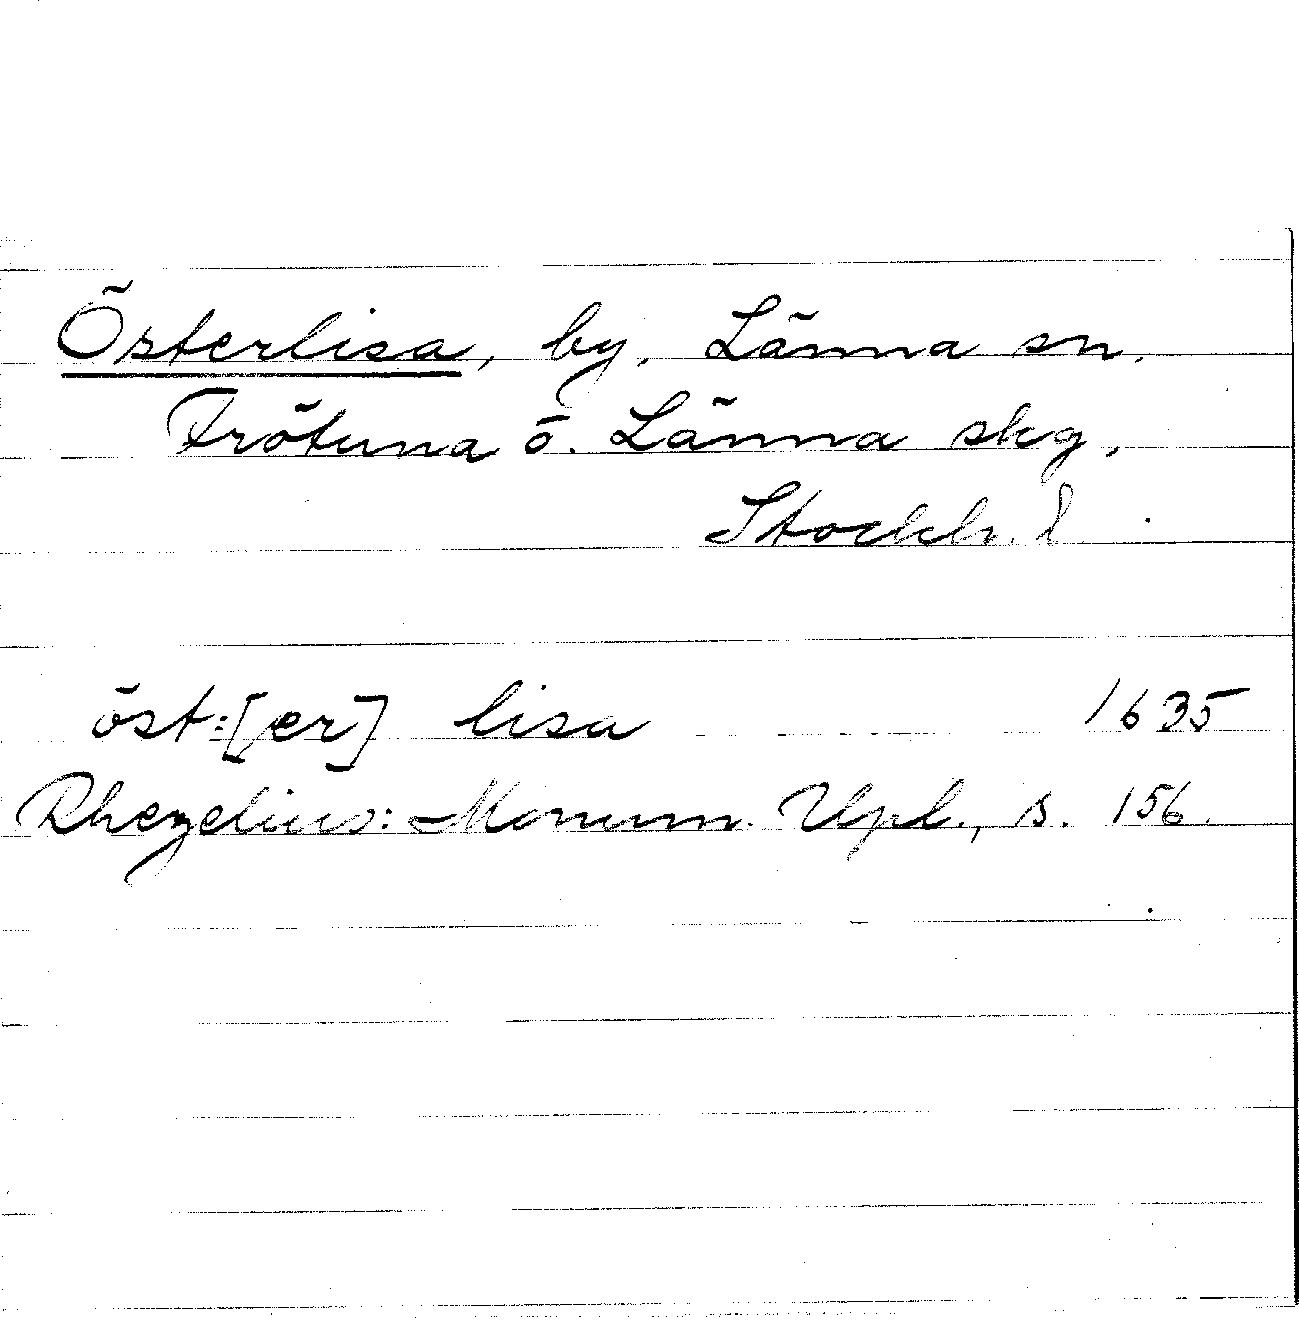 Österlisa, by, Länna sn.
Frötuna o. Länna skg,
Stockh. l
öst:[er] lisa 1635
Rhezelius: Monum. Upl., s. 156.